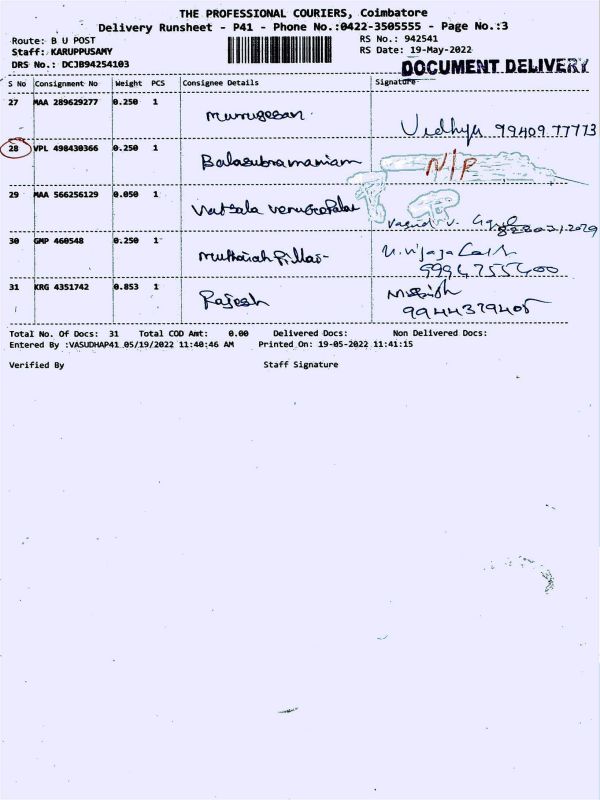 THE PROFESSIONAL COURIERS, Coimbatore
Delivery Runsheet - P41 - Phone No.:0422-3505555 - Page No.:3
Route: B U POST RS No.: 942541
Staff: KARUPPUSAMY RS Date: 19-May-2022
DRS No.: DCJB94254103 DOCUMENT DELIVERY
S No Consignment No Weight PCS Consignee Details Signature
27 MAA 289629277 0.250 1 Murugesan
Vidhya 99409 77773
28 VPL 498430366 0.250 1 Balasubramaniam N/P
29 MAA 566256129 0.050 1 Vatsala Venugopalan
30 GMP 460548 0.250 1 Muthaiah Pillai
9994755400
31 KRG 4351742 0.853 1 Rajesh
9944379405
Total No. Of Docs: 31 Total COD Amt: 0.00 Delivered Docs: Non Delivered Docs:
Entered By :VASUDHAP41 05/19/2022 11:40:46 AM Printed On: 19-05-2022 11:41:15
Verified By Staff Signature